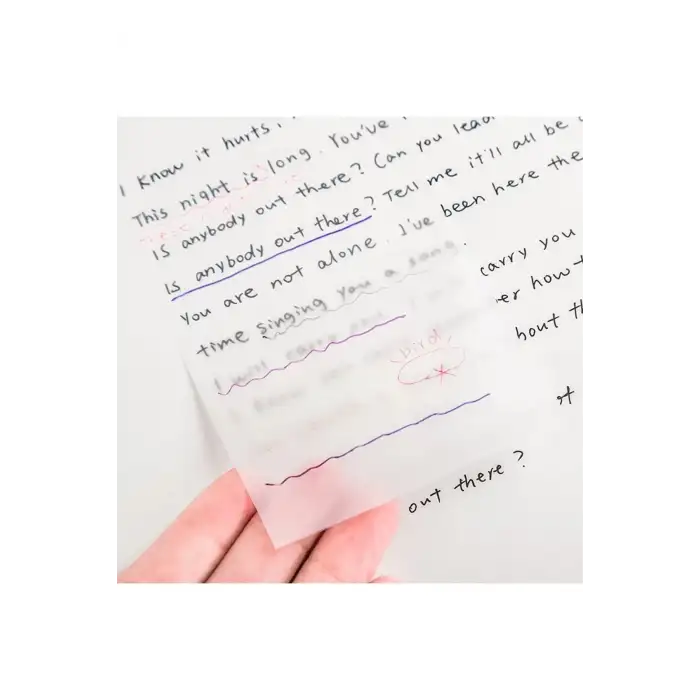 I know it hurts,
This night is long. You've
Is anybody out there? Can you lead
Is anybody out there? Tell me it'll all be
You are not alone. I've been here the
time singing you a song.
I will carry you carry you
er how t
bird
hout th
out there?